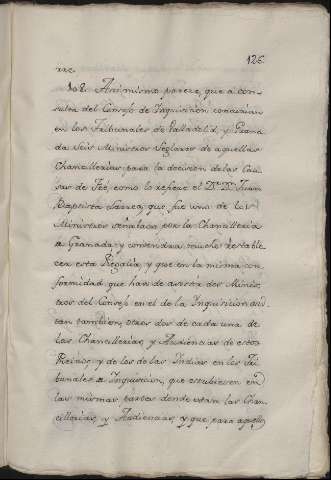 126
108. Asimismo parece, que a con-
sulta del Consejo de Inquisicion concurrian
en los Tribunales de Valladolid, y Grana
da Seis Ministros Seglares de aquellas
Chancillerias para la decision de las Cau-
sas de Feé, como lo refiere el Dr. Dn. Juan
Baptista Larrea, que fue uno de los
Ministros señalados por la Chancilleria
de Granada; y convendra mucho restable
cer esta Regalia, y que en la misma con-
formidad que han de asistir dos Minis-
tros del Consejo en el de la Inquisicion asis-
tan tambien, otros dos de cada una de
las Chancillerias, y Audiencias de estos
Reinos, y de los de las Indias en los Tri-
bunales de Inquisicion, que estubiesen en
las mismas partes donde estan las Chan-
cillerias, y Audiencias, y que para aquellos